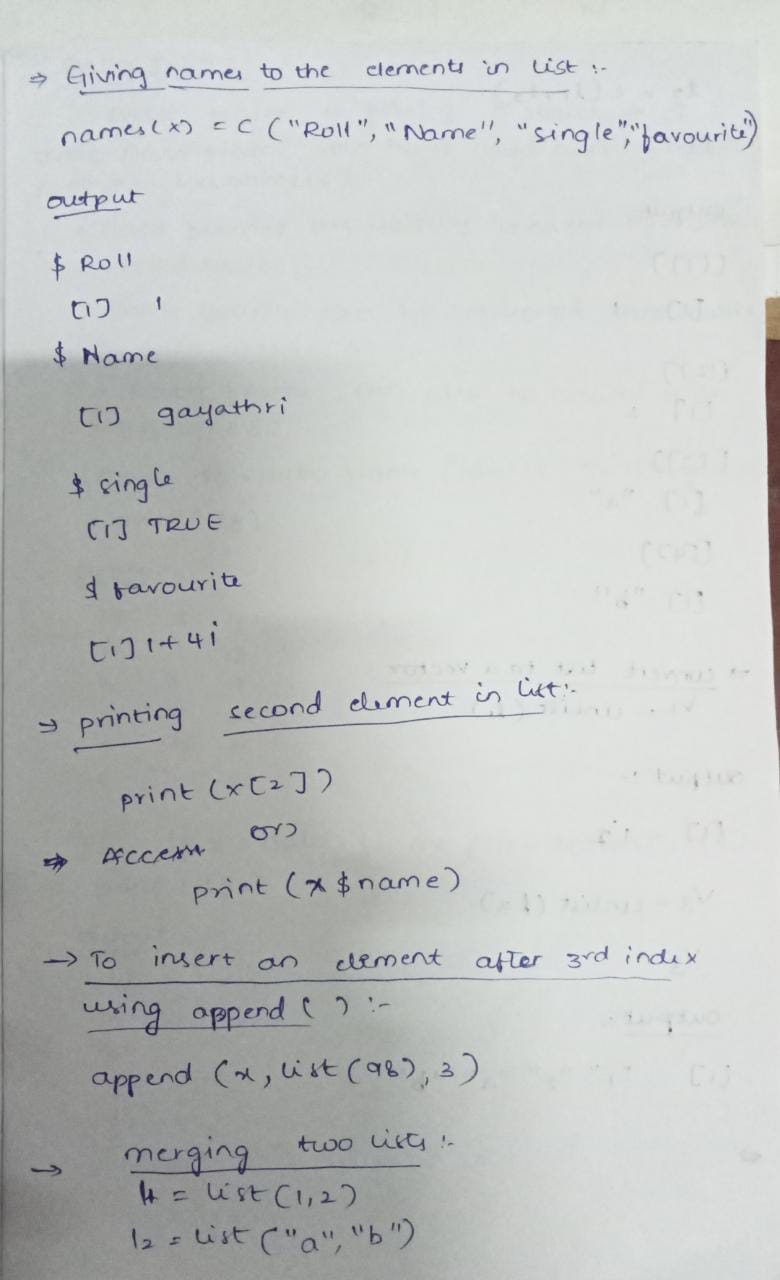 ⇒ Giving names to the elements in list :-
names(x) = c ("Roll", "Name", "single", "favourite")
output
$ Roll
[1] 1
$ Name
[1] gayathri
$ single
[1] TRUE
$ favourite
[1] 1+4i
→ printing second element in list:-
print (x[2])
or)
⇒ Access
print (x $name)
→ To insert an element after 3rd index
using append ( ) :-
append (x, list (98), 3)
→ merging two lists :-
l1 = list (1,2)
l2 = list ("a", "b")